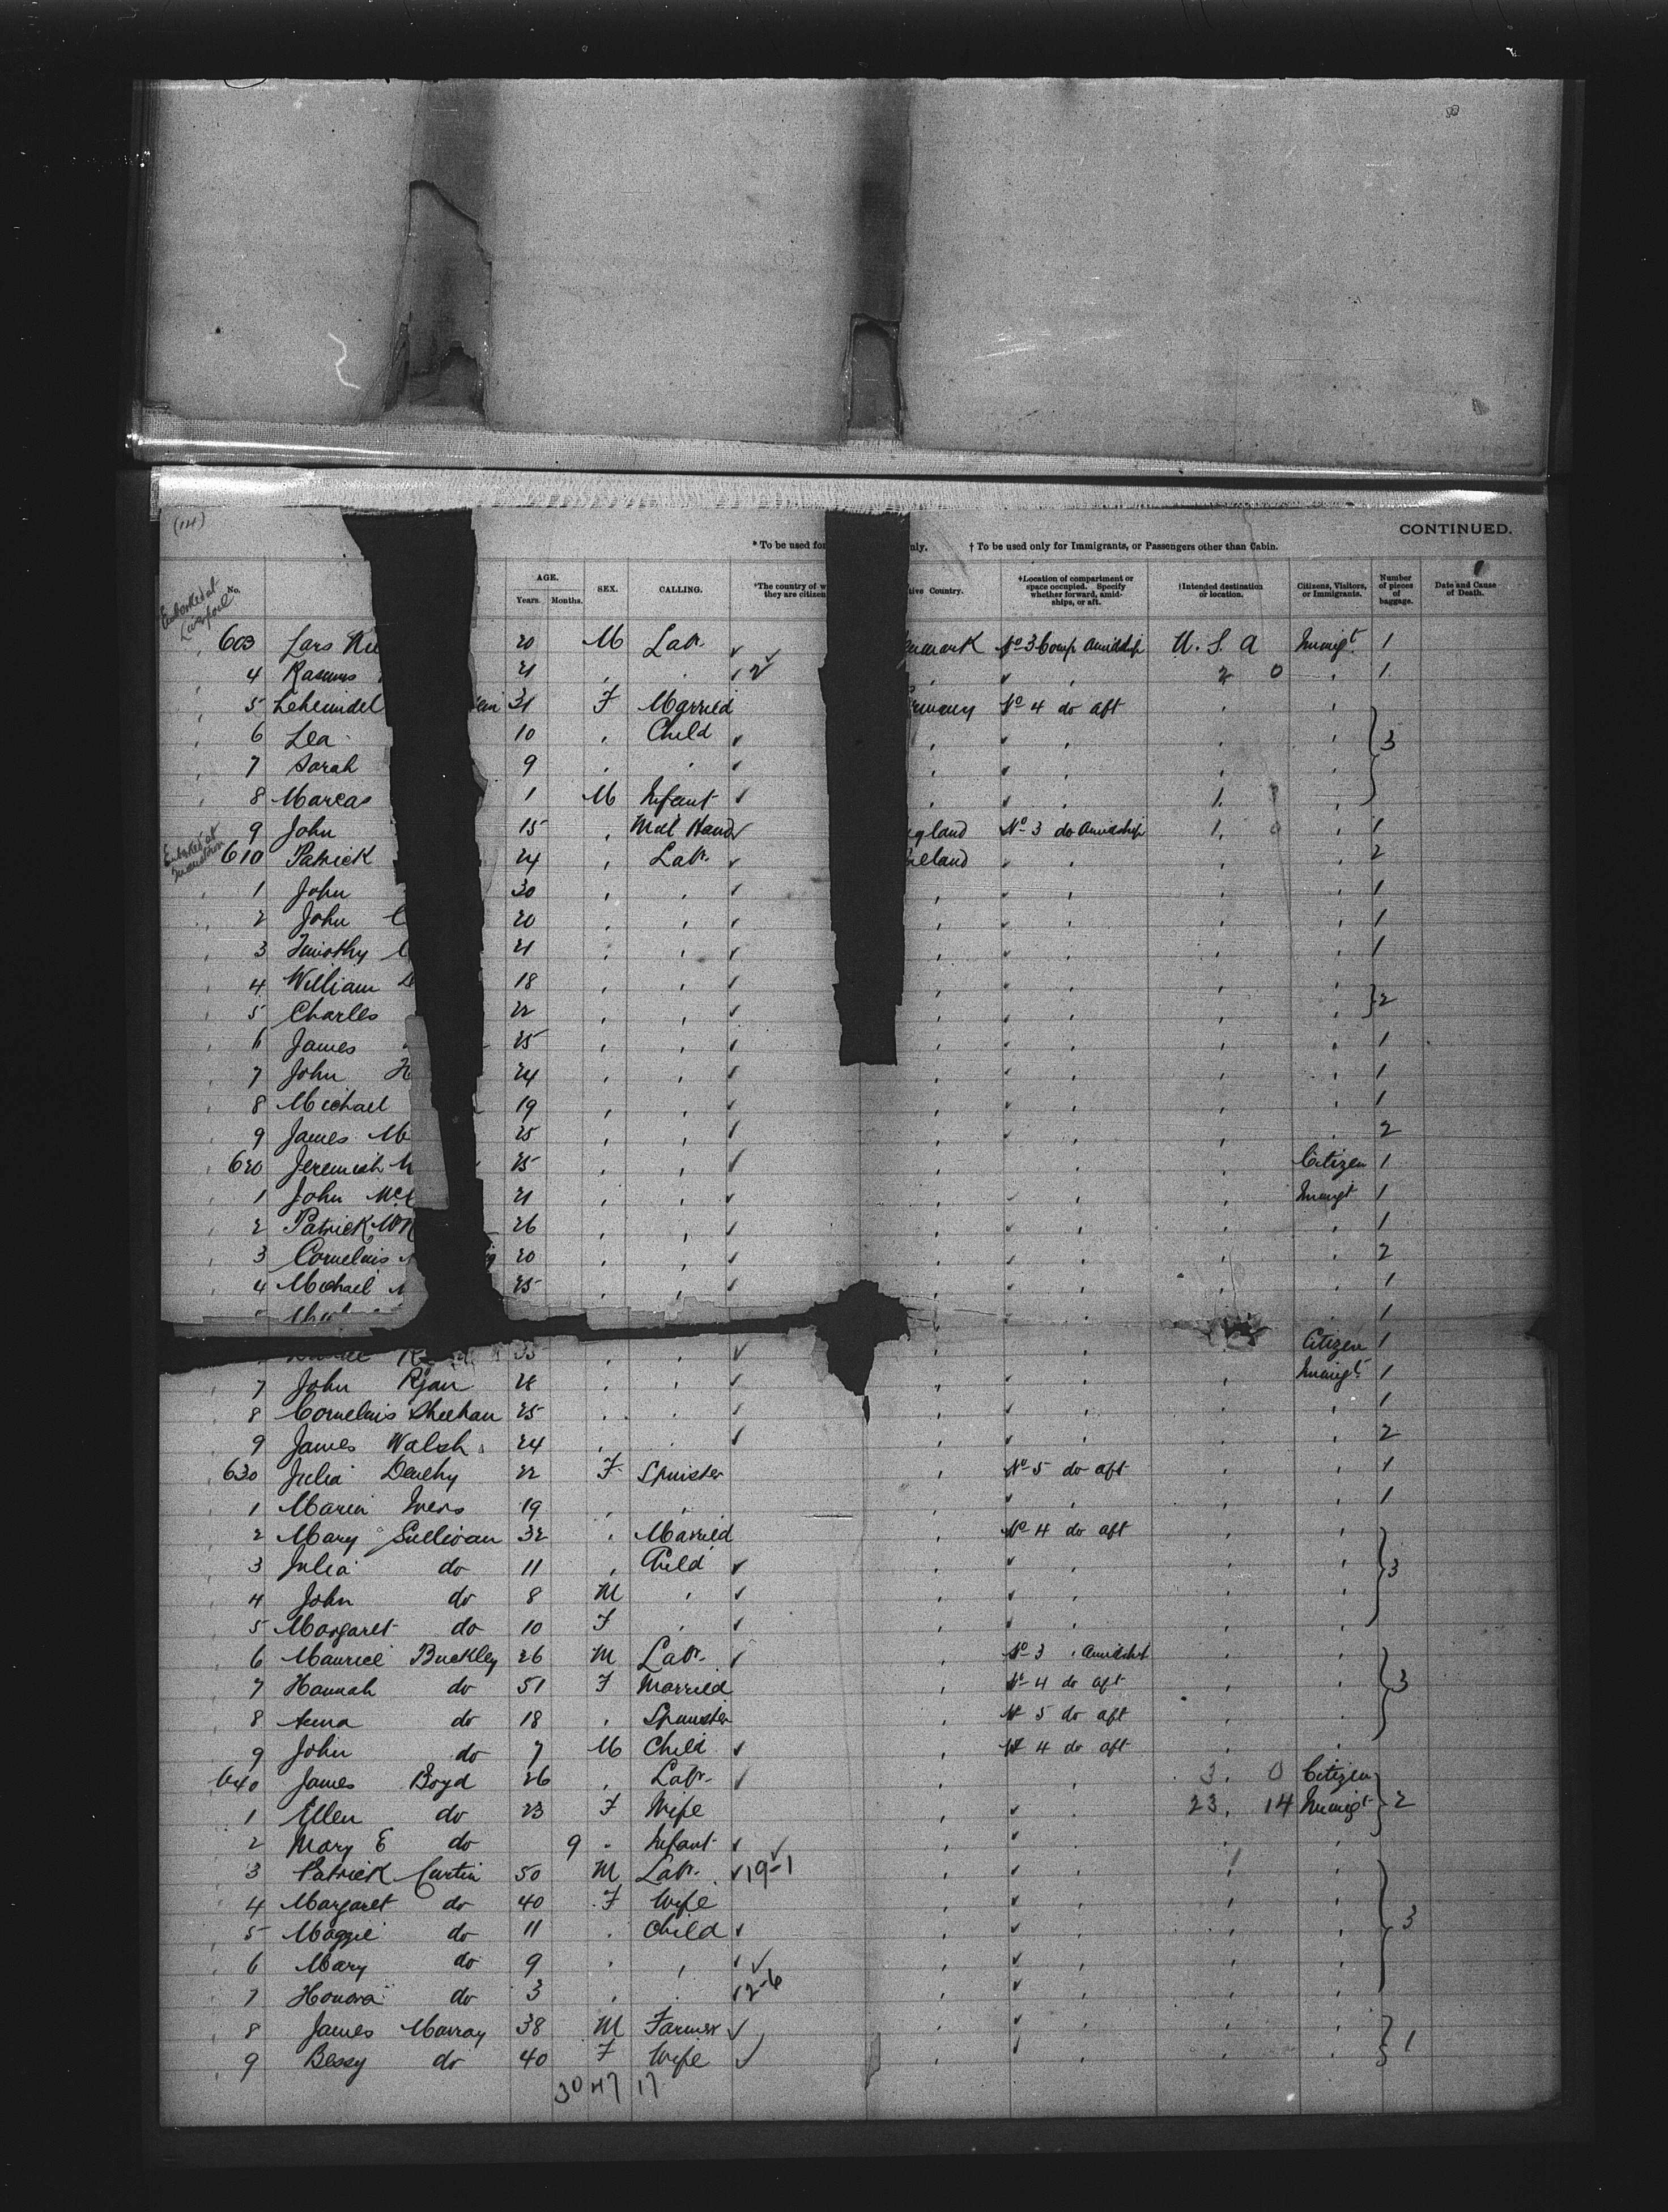 CONTINUED.
* To be used for nly. † To be used only for Immigrants, or Passengers other than Cabin.
No. AGE. Years. Months. SEX. CALLING. *The country of w they are citizen tive Country. †Location of compartment or space occupied. Specify whether forward, amidships, or aft. †Intended destination or location. Citizens, Visitors, or Immigrants. Number of pieces of baggage. Date and Cause of Death.
Embarked at Liverpool
603 Lars 20 M Labr. nmark No 3 Comp Amidship U. S. A Immigt. 1
4 Rasmus 21 2 2 0 1
5 31 F Married rmany No 4 do aft
6 Lea 10 Child 3
7 Sarah 9
8 Marcas 1 M Infant 1
9 John 15 Mill Hand gland No 3 do Amidship 1 1
Embarked at
610 Patrick 24 Labr. reland 2
1 John 30 1
2 John C 20 1
3 Timothy C 21 1
4 William 18
5 Charles 22 2
6 James 25 1
7 John H 24 1
8 Michael 19 1
9 James M 25 2
620 Jeremiah 25 Citizen 1
1 John Mc 21 Immigt 1
2 Patrick 26 1
3 Cornelius 20 2
4 Michael 25 1
1
35 Citizen 1
7 John Ryan 28 Immigt 1
8 Cornelius Sheehan 25 1
9 James Walsh 24 2
630 Julia Denehy 22 F Spinster No 5 do aft 1
1 Maria 19 1
2 Mary Sullivan 32 Married No 4 do aft
3 Julia do 11 Child 3
4 John do 8 M
5 Margaret do 10 F
6 Maurice Buckley 26 M Labr. No 3 Amidship
7 Hannah do 51 F Married No 4 do aft 3
8 Anna do 18 Spinster No 5 do aft
9 John do 7 M Child No 4 do aft
640 James Boyd 26 Labr. 3. 0 Citizen
1 Ellen do 23 F Wife 23. 14 Immigt 2
2 Mary E do 9 Infant
3 Patrick Curtin 50 M Labr. 19-1
4 Margaret do 40 F Wife
5 Maggie do 11 Child 3
6 Mary do 9
7 Honora do 3 2-6
8 James Murray 38 M Farmer
9 Bessy do 40 F Wife 1
30 47 17